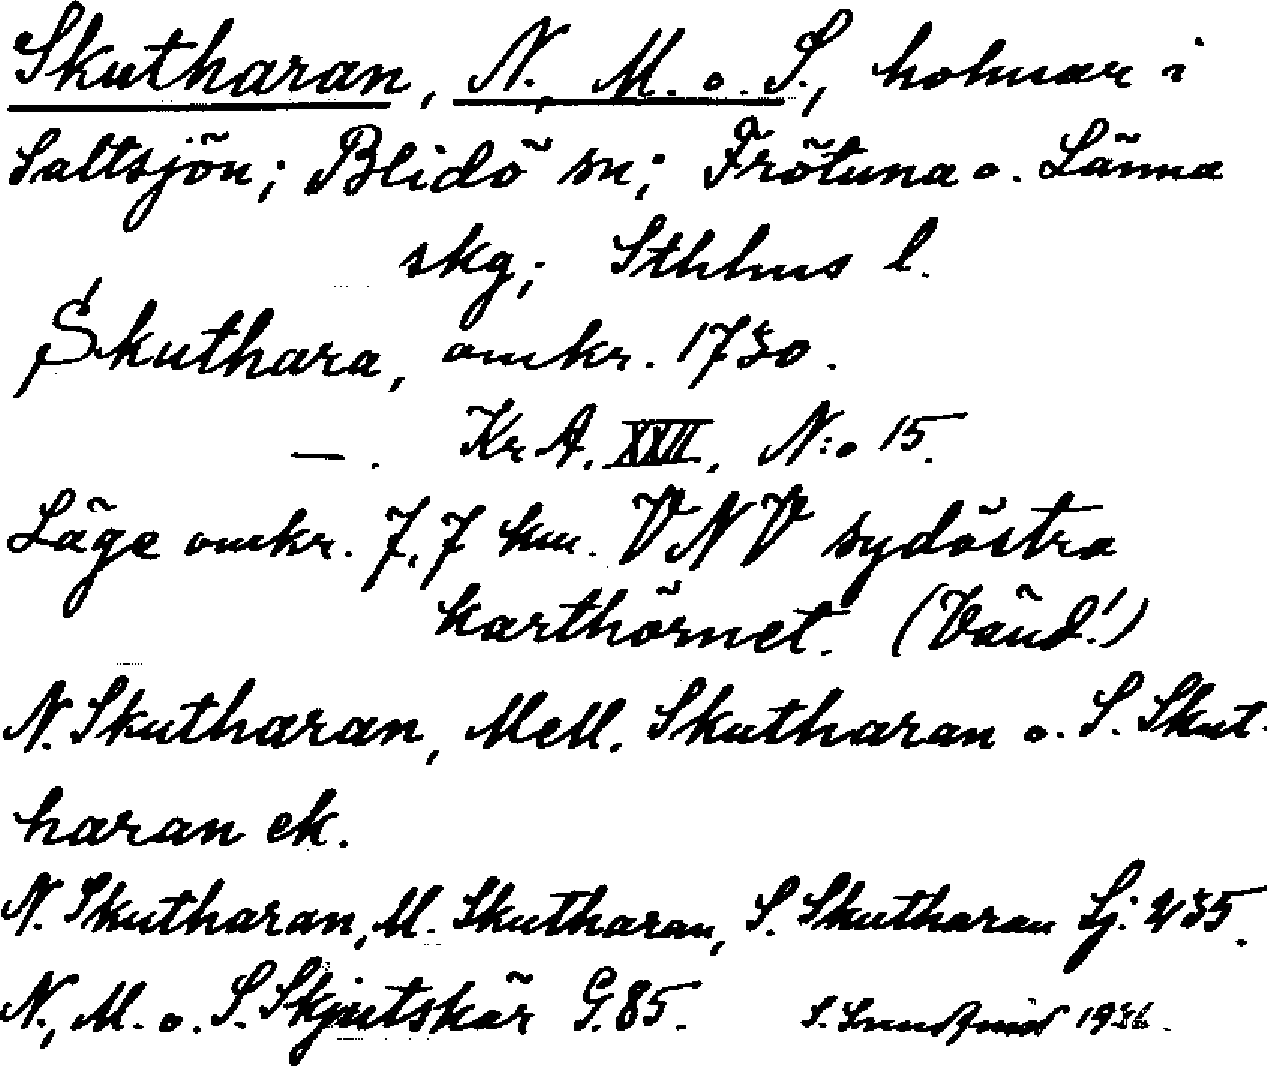 Skutharan, N., M. o. S., holmar i
Saltsjön; Blidö sn; Frötuna o. Länna
skg; Sthlms l.
Skuthara, omkr. 1730.
—. Kr. A. XXII. N:o 15.
Läge omkr. 7,7 km. VNV sydöstra
karthörnet. (Vänd!)
N. Skutharan, Mell. Skutharan o. S. Skut-
haran ek.
N. Skutharan, M. Skutharan, S. Skutharan Sj. 235.
N., M. o. S. Skjutskär G. 85. S. 1936.